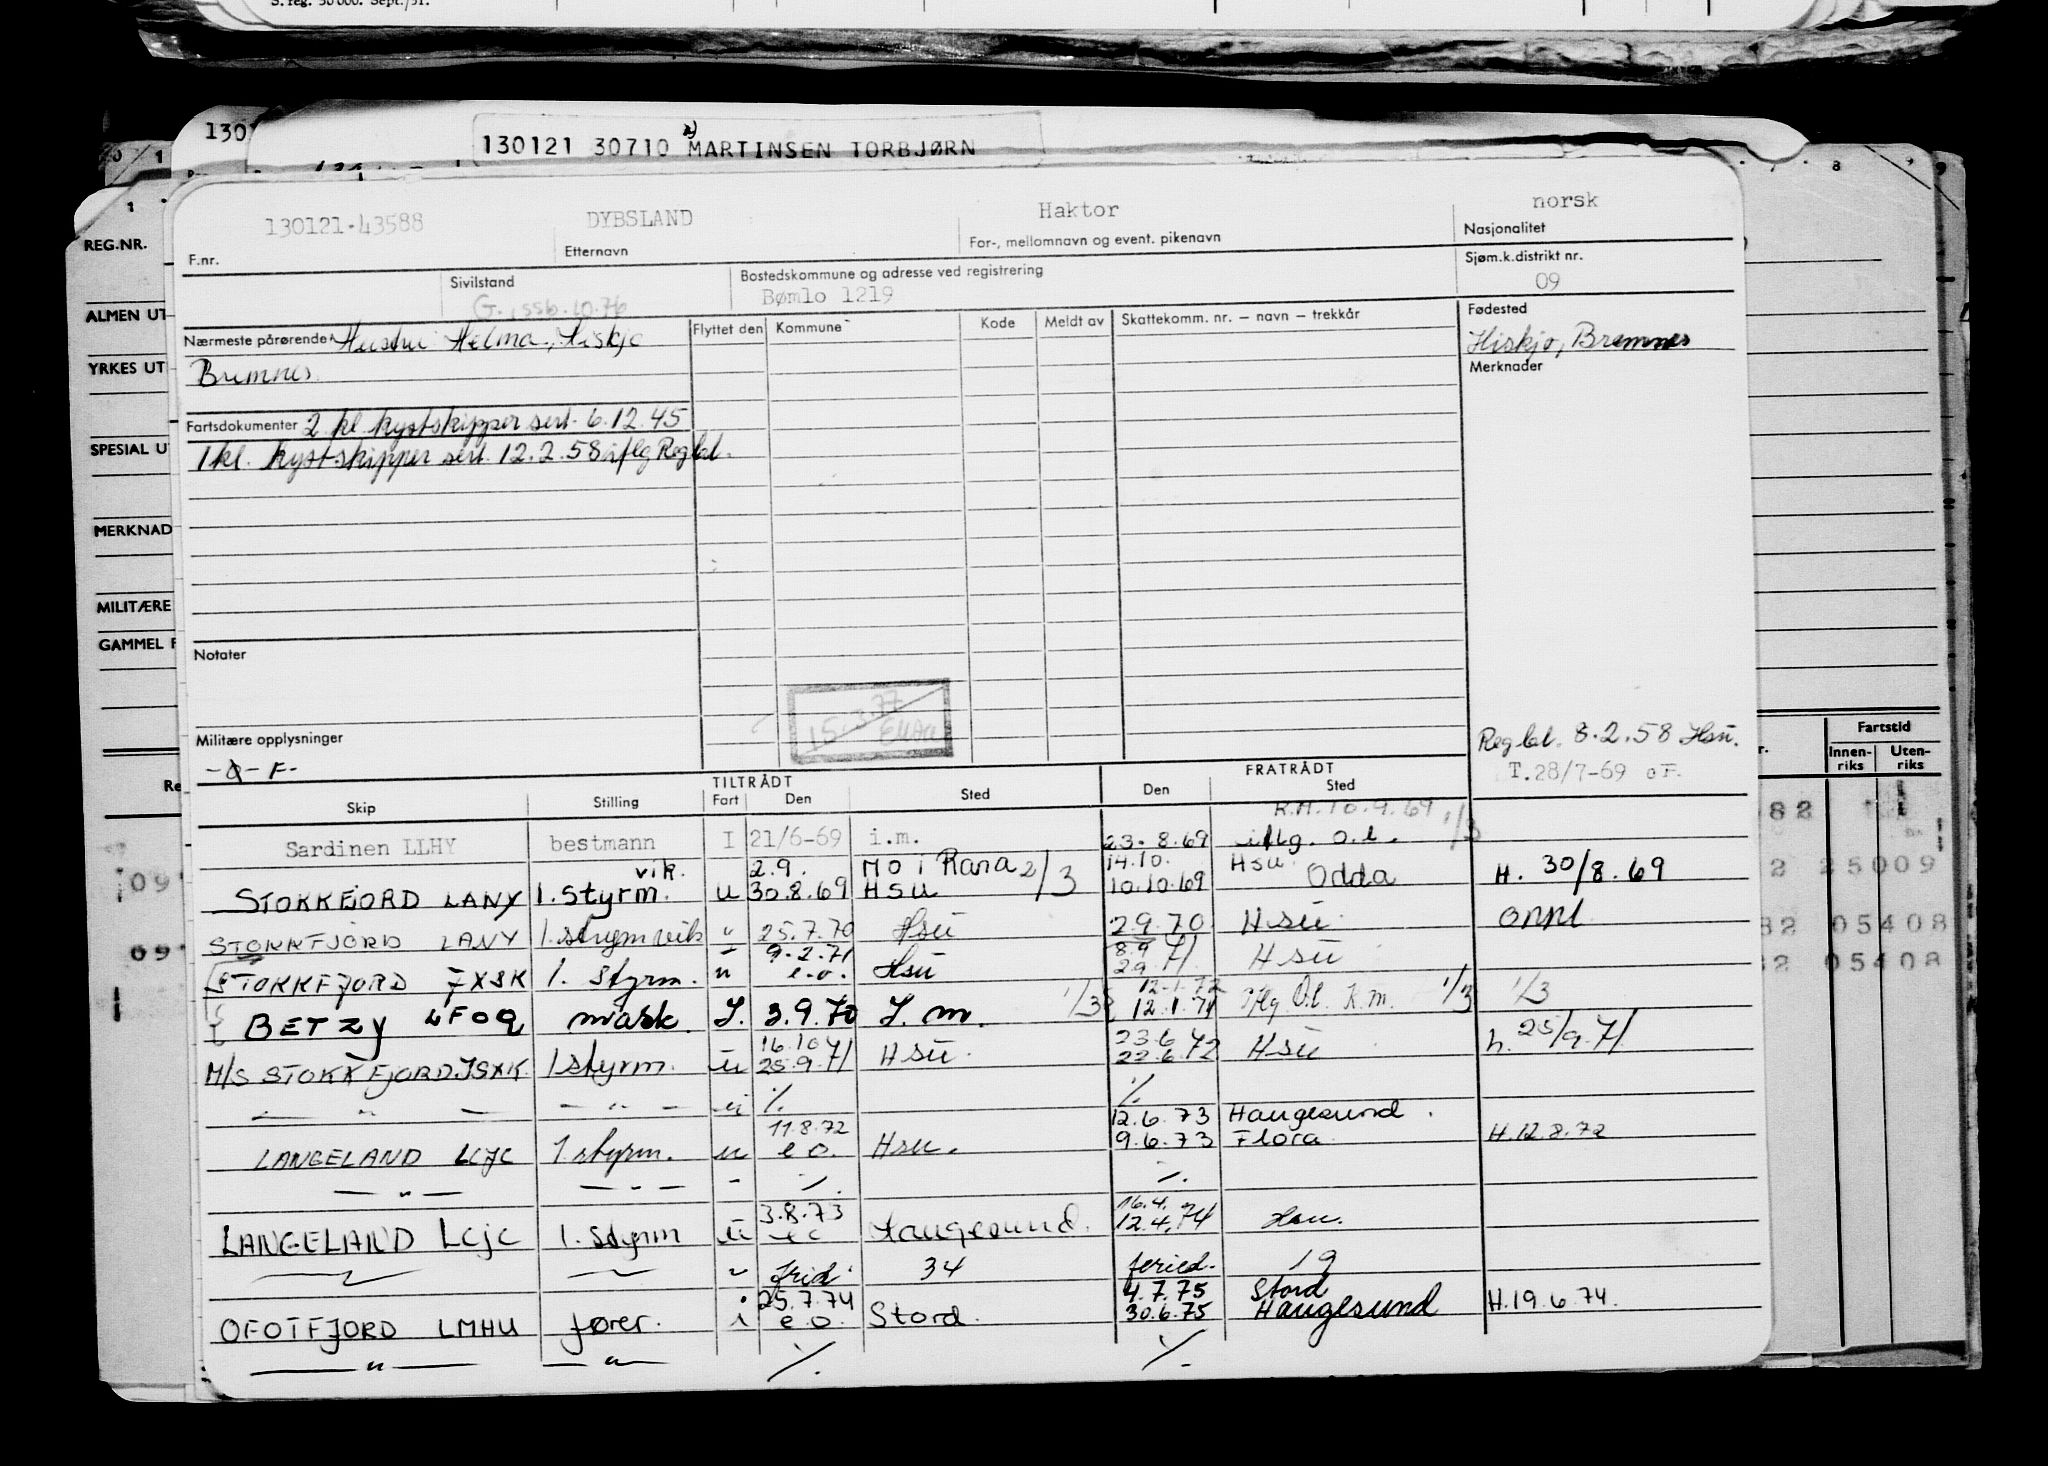 S. reg. 30 000. Sept./51.
130
130121 30710 MARTINSEN TORBJØRN
REG.NR.
ALMEN UT
YRKES UT
SPESIAL U
MERKNAD
MILITÆRE
GAMMEL F
130121.43588 DYBSLAND Haktor norsk
F.nr. Etternavn For-, mellomnavn og event. pikenavn Nasjonalitet
Sivilstand Bostedskommune og adresse ved registrering Sjøm.k.distrikt nr.
G. ssb.10.76 Bømlo 1219 09
Nærmeste pårørende Hustru Helma, Hiskjo Flyttet den Kommune Kode Meldt av Skattekomm. nr. – navn – trekkår Fødested
Bremnes Hiskjo, Bremnes
Merknader
Fartsdokumenter 2 kl. kystskipper sert. 6.12.45
1 kl. kystskipper sert. 12.2.58 iflg Reg bl.
Notater
15.3.77
Militære opplysninger
-F-
Reg bl. 8.2.58 Hsu.
T.28/7-69 oF.
TILTRÅDT FRATRÅDT
Skip Stilling Fart Den Sted Den Sted
R.M. 10.9.69 1/3
Sardinen LLHY bestmann I 21/6-69 i.m. 23.8.69 iflg. o.l.
vik. 2.9. Mo i Rana 2/3 14.10. Hsu
STOKKFJORD LANY 1. styrm. u 30.8.69 Hsu 10.10.69 Odda H. 30/8.69
STOKKFJORD LANY 1. styrm vik " 25.7.70 Hsu 2.9.70 Hsu
9.2.71 8.9
STOKKFJORD JXSK 1. styrm. u e.o. Hsu 29.71 Hsu
12.1.72
BETZY LFOQ mask. I. 3.9.70 I. m. 1/3 12.1.71 iflg O.l. K.m. 1/3 1/3
16.10 23.6
M/S STOKKFJORD JSXK 1 styrm. u 25.9.71 Hsu. 22.6.72 Hsu h. 25/9.71
— " — — " — u ./. ./.
11.8.72 12.6.73 Haugesund.
LANGELAND LCJC 1 styrm. u e.o. Hsu. 9.6.73 Flora H.12.8.72
— " — — " — - ./. ./.
3.8.73 16.4.
LANGELAND LCJC 1. styrm u eo Haugesund. 12.4.74 Hsu.
" frid. 34 feried. 19
25.7.74 4.7.75 Stord
OFOTFJORD LMHU fører. i e.o. Stord. 30.6.75 Haugesund H.19.6.74.
— " — — " — ./. ./.
Fartstid
Innen-riks Uten-riks
25009
05408
05408